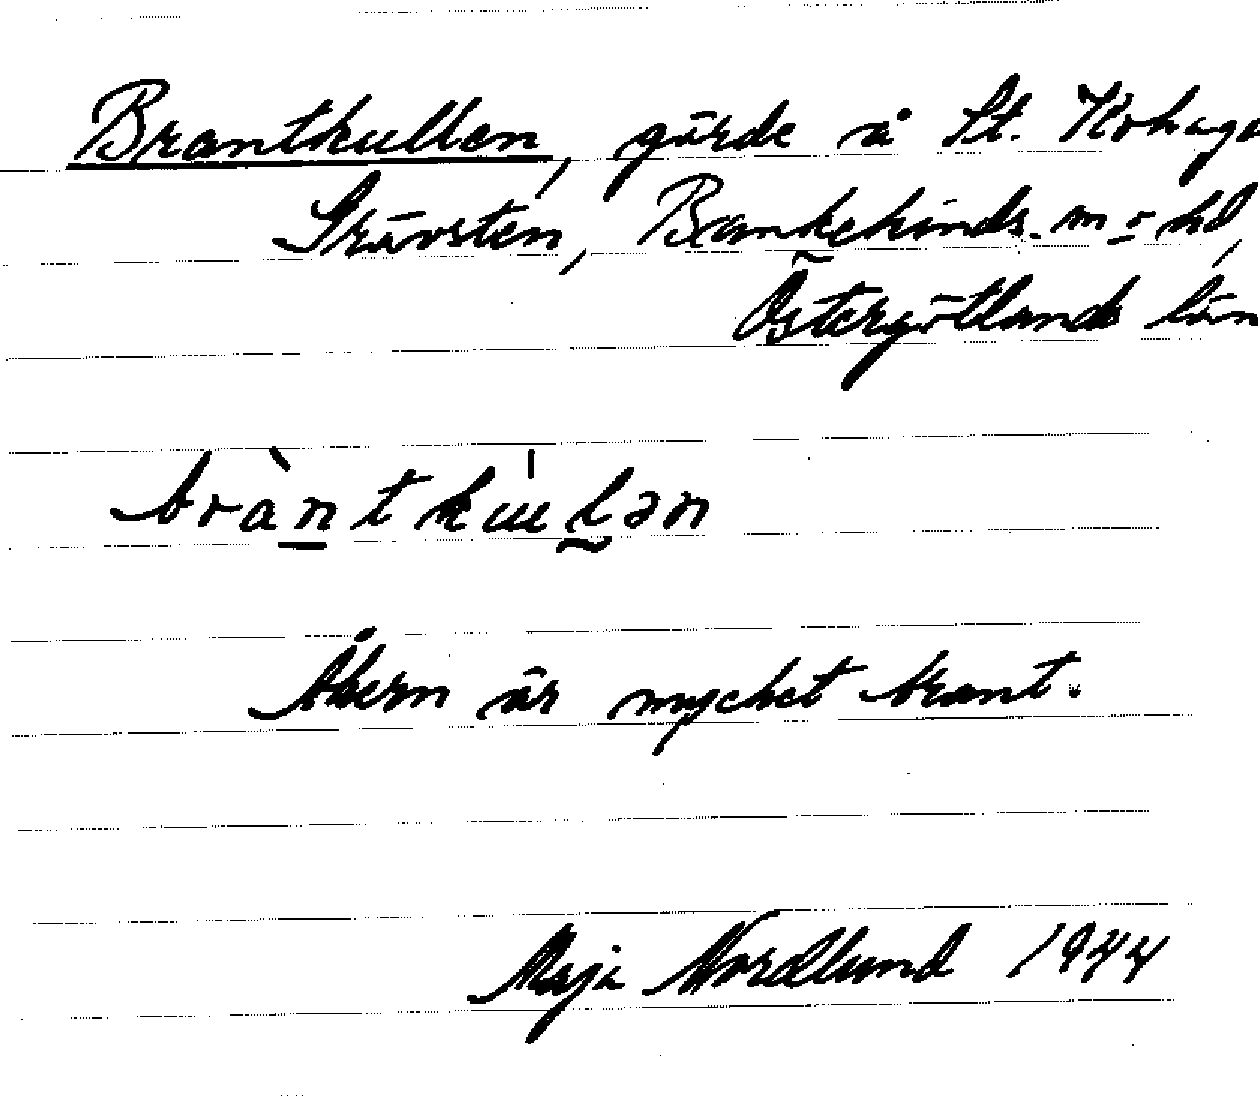 Brantkullen, gärde å St. Kohaga
Skävsten, Bankekinds sn o hd,
Östergötlands län
bràntkúlən
Åkern är mycket brant.
Maja Nordlund 1944